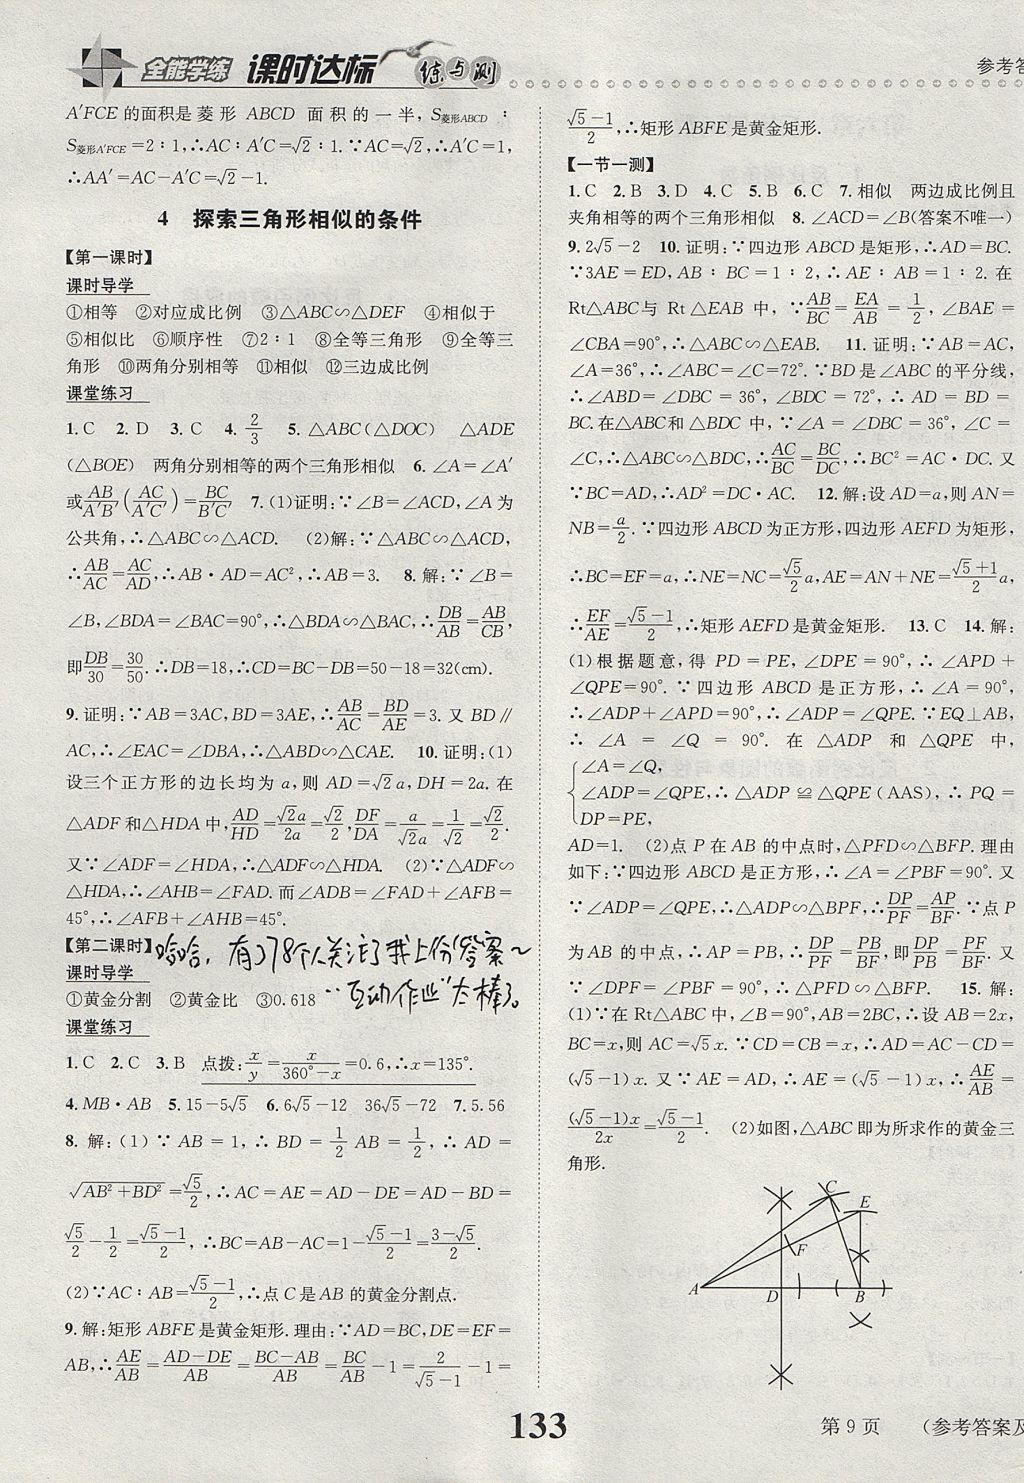 全能学练 课时达标 练与测
参考答
A′FCE的面积是菱形 ABCD 面积的一半,S菱形ABCD∶
S菱形A′FCE=2∶1,∴AC∶A′C=√2∶1.∵AC=√2,∴A′C=1,
∴AA′=AC-A′C=√2-1.
4 探索三角形相似的条件
【第一课时】
课时导学
①相等 ②对应成比例 ③△ABC∽△DEF ④相似于
⑤相似比 ⑥顺序性 ⑦2∶1 ⑧全等三角形 ⑨全等三
角形 ⑩两角分别相等 ⑪相似 ⑫三边成比例
课堂练习
1.C 2.D 3.C 4.2/3 5.△ABC(△DOC) △ADE
(△BOE) 两角分别相等的两个三角形相似 6.∠A=∠A′
或AB/A′B′(AC/A′C′)=BC/B′C′ 7.(1)证明:∵∠B=∠ACD,∠A为
公共角,∴△ABC∽△ACD. (2)解:∵△ABC∽△ACD,
∴AB/AC=AC/AD,∴AB·AD=AC²,∴AB=3. 8.解:∵∠B=
∠B,∠BDA=∠BAC=90°,∴△BDA∽△BAC,∴DB/AB=AB/CB,
即DB/30=30/50.∴DB=18,∴CD=BC-DB=50-18=32(cm).
9.证明:∵AB=3AC,BD=3AE,∴AB/AC=BD/AE=3.又BD∥
AC,∴∠EAC=∠DBA,∴△ABD∽△CAE. 10.证明:(1)
设三个正方形的边长均为a,则AD=√2a,DH=2a.在
△ADF和△HDA中,AD/HD=√2a/2a=√2/2,DF/DA=a/√2a=1/√2=√2/2.
又∵∠ADF=∠HDA,∴△ADF∽△HDA. (2)∵△ADF∽
△HDA,∴∠AHB=∠FAD.而∠ADB=∠FAD+∠AFB=
45°,∴∠AFB+∠AHB=45°.
【第二课时】哈哈,有278个人关注了我上份答案~
课时导学
①黄金分割 ②黄金比 ③0.618 “互动作业”太棒了。
课堂练习
1.C 2.C 3.B 点拨:x/y=x/(360°-x)=0.6,∴x=135°.
4.MB·AB 5.15-5√5 6.6√5-12 36√5-72 7.5.56
8.解:(1)∵AB=1,∴BD=1/2AB=1/2,∴AD=
√(AB²+BD²)=√5/2,∴AC=AE=AD-DE=AD-BD=
√5/2-1/2=(√5-1)/2,∴BC=AB-AC=1-(√5-1)/2=(3-√5)/2.
(2)∵AC∶AB=(√5-1)/2,∴点C是AB的黄金分割点.
9.解:矩形ABFE是黄金矩形.理由:∵AD=BC,DE=EF=
AB,∴AE/AB=(AD-DE)/AB=(BC-AB)/AB=BC/AB-1=2/(√5-1)-1=
(√5-1)/2,∴矩形ABFE是黄金矩形.
【一节一测】
1.C 2.B 3.D 4.C 5.B 6.C 7.相似 两边成比例且
夹角相等的两个三角形相似 8.∠ACD=∠B(答案不唯一)
9.2√5-2 10.证明:∵四边形ABCD是矩形,∴AD=BC.
∵3AE=ED,AB∶BC=1∶2,∴AE∶AB=1∶2.在
Rt△ABC与 Rt△EAB 中, ∵AB/BC=EA/AB=1/2,∠BAE=
∠CBA=90°,∴△ABC∽△EAB. 11.证明:∵AB=AC,
∠A=36°,∴∠ABC=∠C=72°.∵BD是∠ABC的平分线,
∴∠ABD=∠DBC=36°,∠BDC=72°,∴AD=BD=
BC.在△ABC和△BDC中,∵∠A=∠DBC=36°,∠C=
∠C,∴△ABC∽△BDC,∴AC/BC=BC/DC,∴BC²=AC·DC.又
∵BC=AD,∴AD²=DC·AC. 12.解:设AD=a,则AN=
NB=a/2.∵四边形ABCD为正方形,四边形AEFD为矩形,
∴BC=EF=a,∴NE=NC=√5/2a,AE=AN+NE=(√5+1)/2a,
∴EF/AE=(√5-1)/2,∴矩形AEFD是黄金矩形. 13.C 14.解:
(1)根据题意,得 PD=PE,∠DPE=90°,∴∠APD+
∠QPE=90°.∵四边形ABCD是正方形,∴∠A=90°,
∴∠ADP+∠APD=90°,∴∠ADP=∠QPE.∵EQ⊥AB,
∴∠A=∠Q=90°.在△ADP和△QPE中,
∠A=∠Q,
∠ADP=∠QPE,∴△ADP≌△QPE(AAS),∴PQ=
DP=PE,
AD=1. (2)点P在AB的中点时,△PFD∽△BFP.理由
如下:∵四边形ABCD是正方形,∴∠A=∠PBF=90°.又
∵∠ADP=∠QPE,∴△ADP∽△BPF,∴DP/PF=AP/BF.∵点P
为AB的中点,∴AP=PB,∴DP/PF=PB/BF,即DP/PB=PF/BF.又
∵∠DPF=∠PBF=90°,∴△PFD∽△BFP. 15.解:
(1)∵在Rt△ABC中,∠B=90°,AB=2BC,∴设AB=2x,
BC=x,则AC=√5x.∵CD=CB=x,∴AD=AC-CD=
(√5-1)x.又∵AE=AD,∴AE=(√5-1)x,∴AE/AB=
(√5-1)x/2x=(√5-1)/2. (2)如图,△ABC即为所求作的黄金三
角形.
C
E
F
A D B
133 第9页 (参考答案及